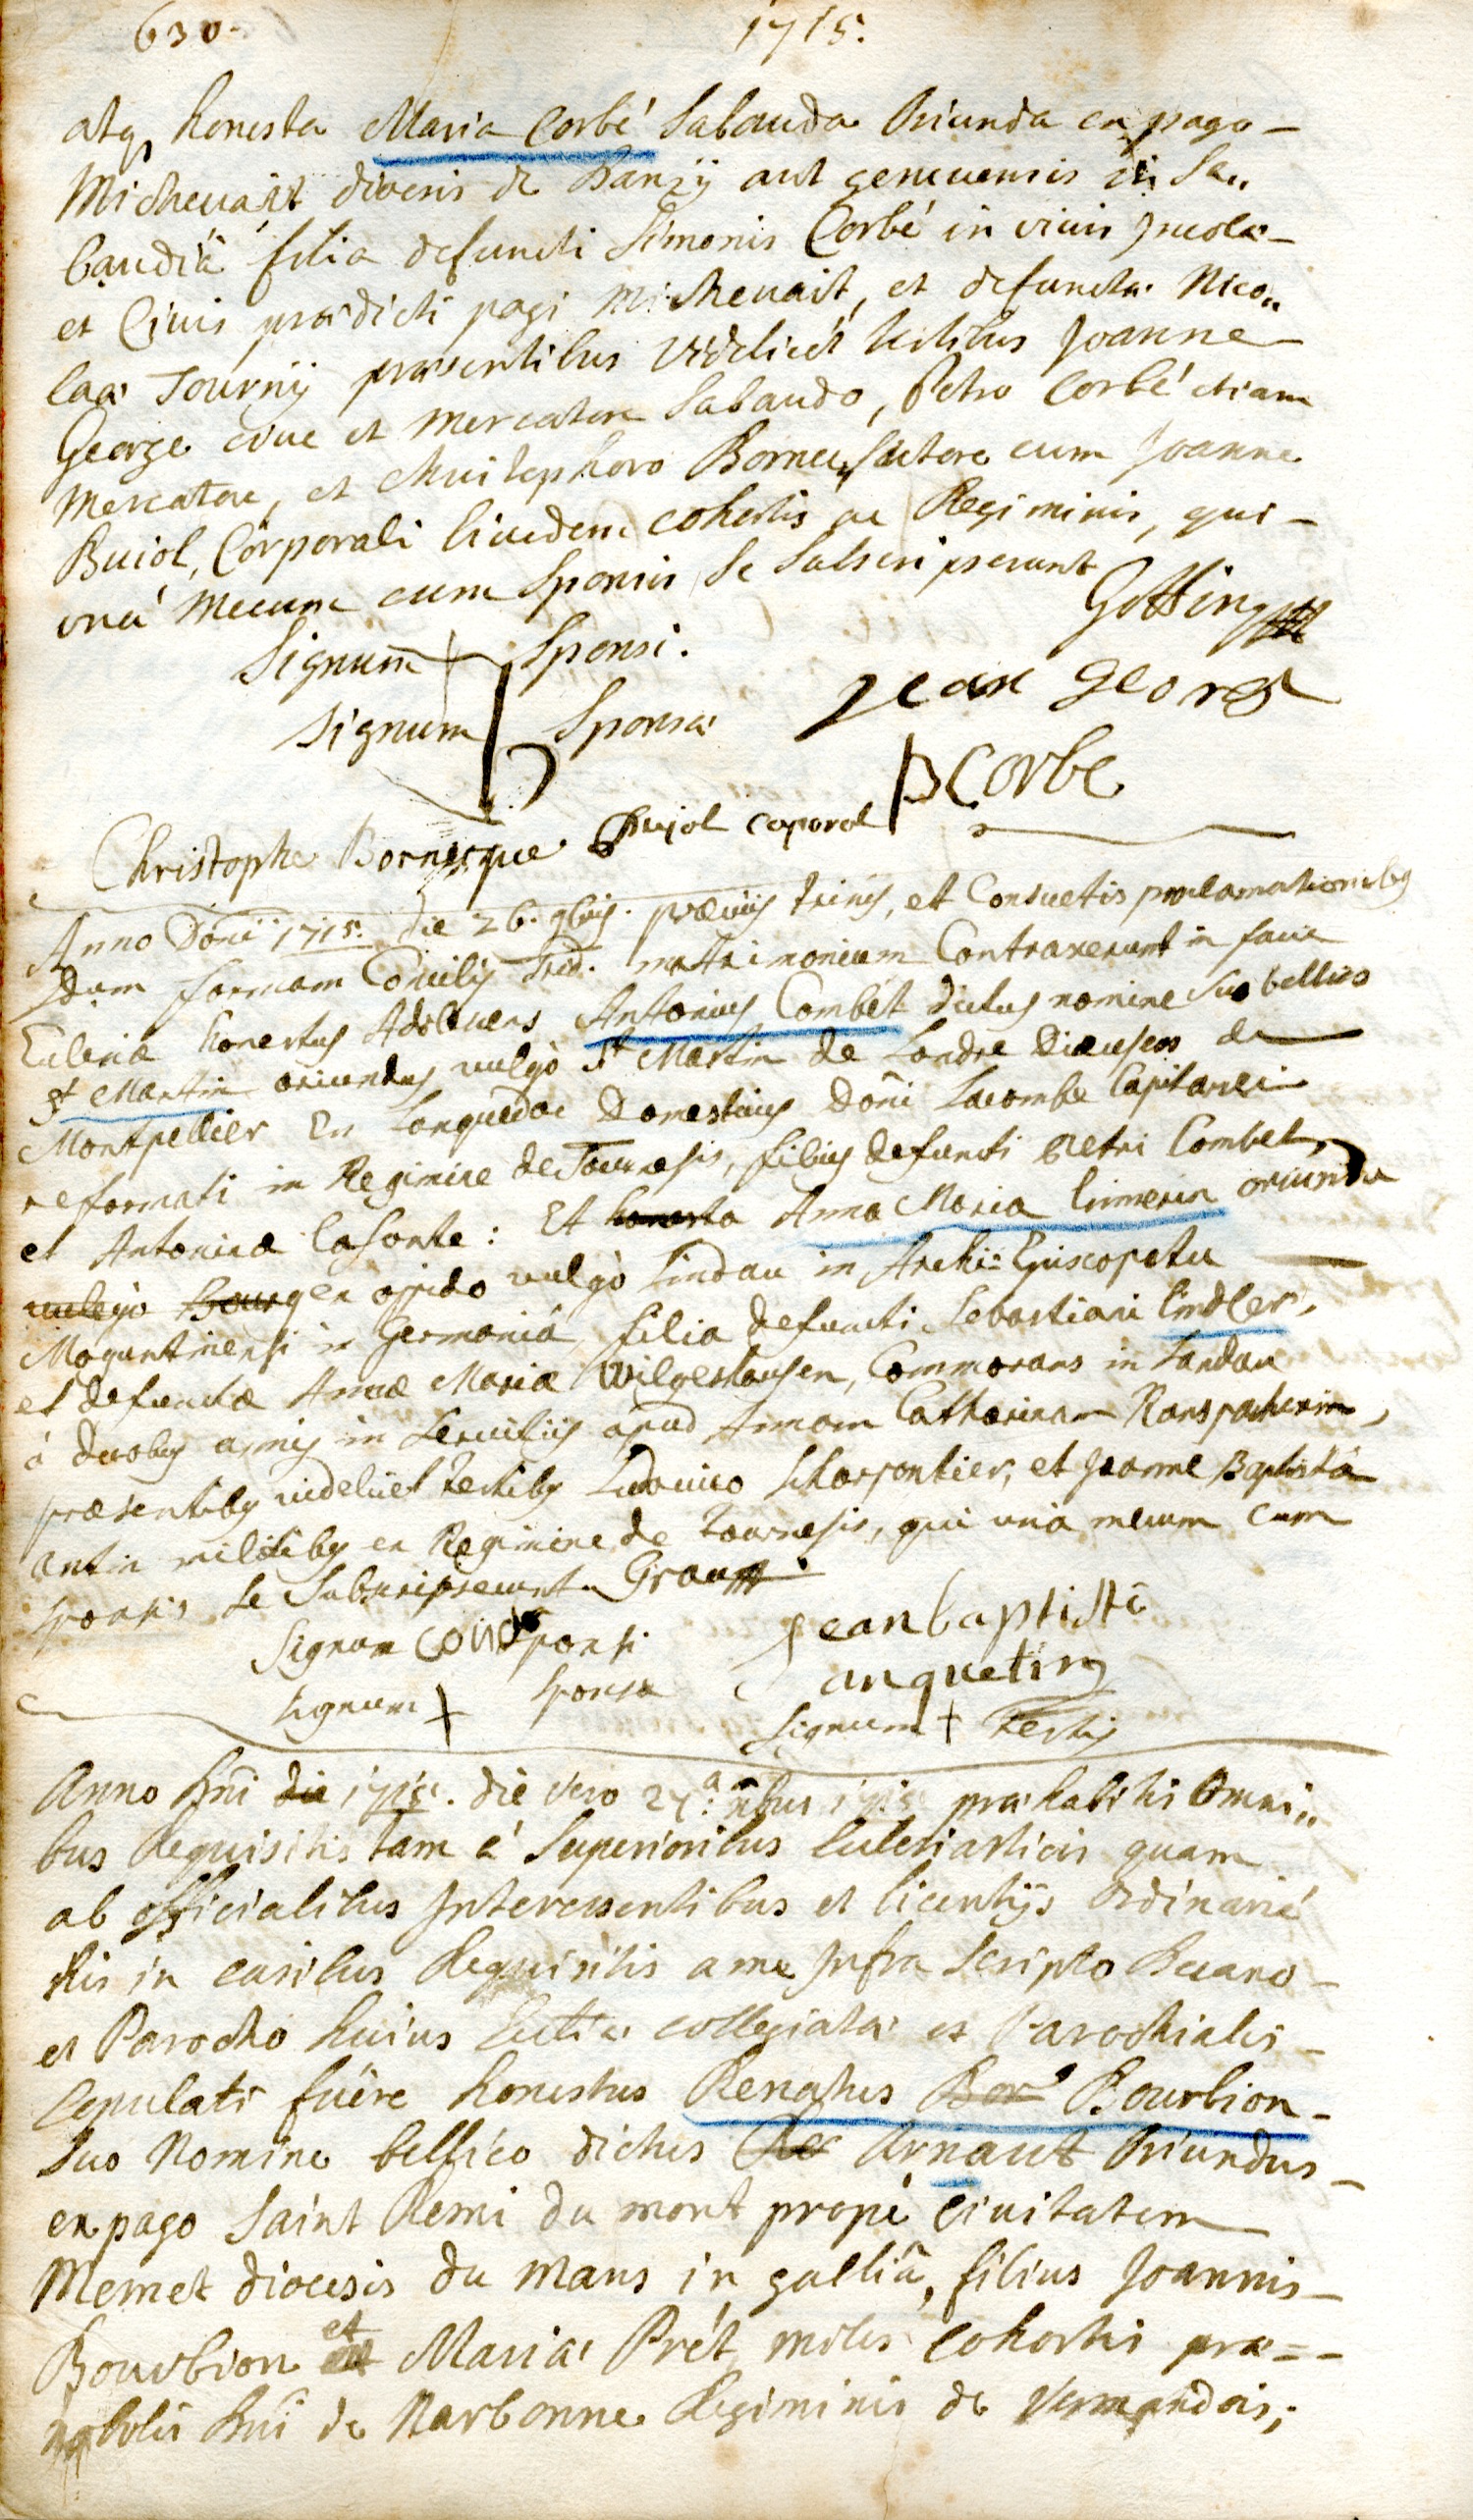 630. 1715.
atq honesta Maria Corbé Sabauda Oriunda ex pago
Michevait diocesis de Banzÿ aut genevensis in Sa„
baudiâ filia defuncti Simonis Corbé in vivis Incola
et Civis prædicti pagi Michevait, et defunctæ Nico„
laæ Tournÿ præsentibus videlicet testibus Joanne
George cive et mercatore Sabaudo, Petro Corbé etiam
mercatore, et Christophoro Borne sutore cum Joanne
Buiol, Corporali Eiusdem cohortis ac Regiminis, qui
unà mecum cum Sponsis se subscripserunt
Gotting
Signum + Sponsi.
Jean George
Signum Sponsæ
P Corbe
Christophe Bornerque Pujol caporal
Anno Doñi 1715. die 26. 9bris. præviis trinis, et Consuetis proclamationibg
formam Concilij Trid. matrimonium Contraxerunt in facie
Eclesiæ honestus Adolescens Antonius Combét dictus nomine suo bellico
St Martin oriundus vulgò St Martin de Londre Dieuseos de
Montpellier En Languedoc Domesticus Doñi Lacombe Capitanei
reformati in Regimine de Tournesis, filius defuncti Petri Combet,
et Antoniæ Lasonte: Et honesta Anna Maria Linnerin oriunda
vulgo Bourg ex opido vulgò Lindau in Archi-Episcopatu
Moguntinensi in Germaniâ filia defuncti Sebastiani Lindler,
et defunctæ Annæ Mariæ Wilgeshausen, Commorans in Landau
à duobus annis in Servitiis apud Annam Catharinam Ranspacherin,
præsentibg videlicet testibg Ludovico Scharpontier, et Joanne Baptista
antin militibg ex Regimine de Tournesis, qui unà mecum cum
sponsis se Subscripserunt
Signum sponsi
Jean baptiste
anquetin
Signum + sponsæ
Signum + Testis
Anno Dñi die 1715. die vero 27a 9bris 1715 præhabitis Omni„
bus Requisitis tam è Superioribus Ecclesiasticis quam
ab officialibus Interessentibus et licentÿs Ordinariè
his in casibus Requisitis a me Infra Scripto Decano
et Parocho huius Ecclæ collegiatæ et Parochialis
Copulati fuêre honestus Renatus Bor Bourbion
Suo Nomine bellico dictus Arnaut Oriundus
ex pago Saint Remi du mont propè Civitatem
Memet diocesis du Mans in galliâ, filius Joannis
Bourbion et Mariæ Prét, miles Cohortis præ=
nobilis Dñi de Narbonne Regiminis de Vermandois;